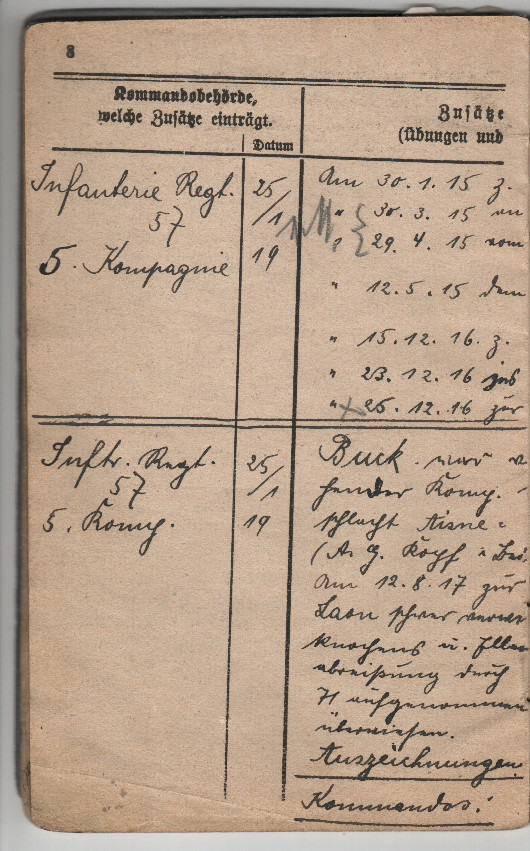 8
Kommandobehörde,
welche Zusätze einträgt.
Datum
Zusätze
(Übungen und
Infanterie Regt.
57
5. Kompagnie
25/1
19
Am 30.1.15 z.
" 30.3.15 an
" 29.4.15 vom
" 12.5.15 dem
" 15.12.16 z.
" 23.12.16 ins
" 25.12.16 zur
Inftr. Regt.
57
5. Komp.
25/1
19
Buck war
hender Komp.
schlacht Aisne-
(A. G. Kopf u.
Am 12.8.17 zur
Laon schwer
knochens u.
abreißung durch
71 aufgenommen
überwiesen.
Auszeichnungen
Kommandos: